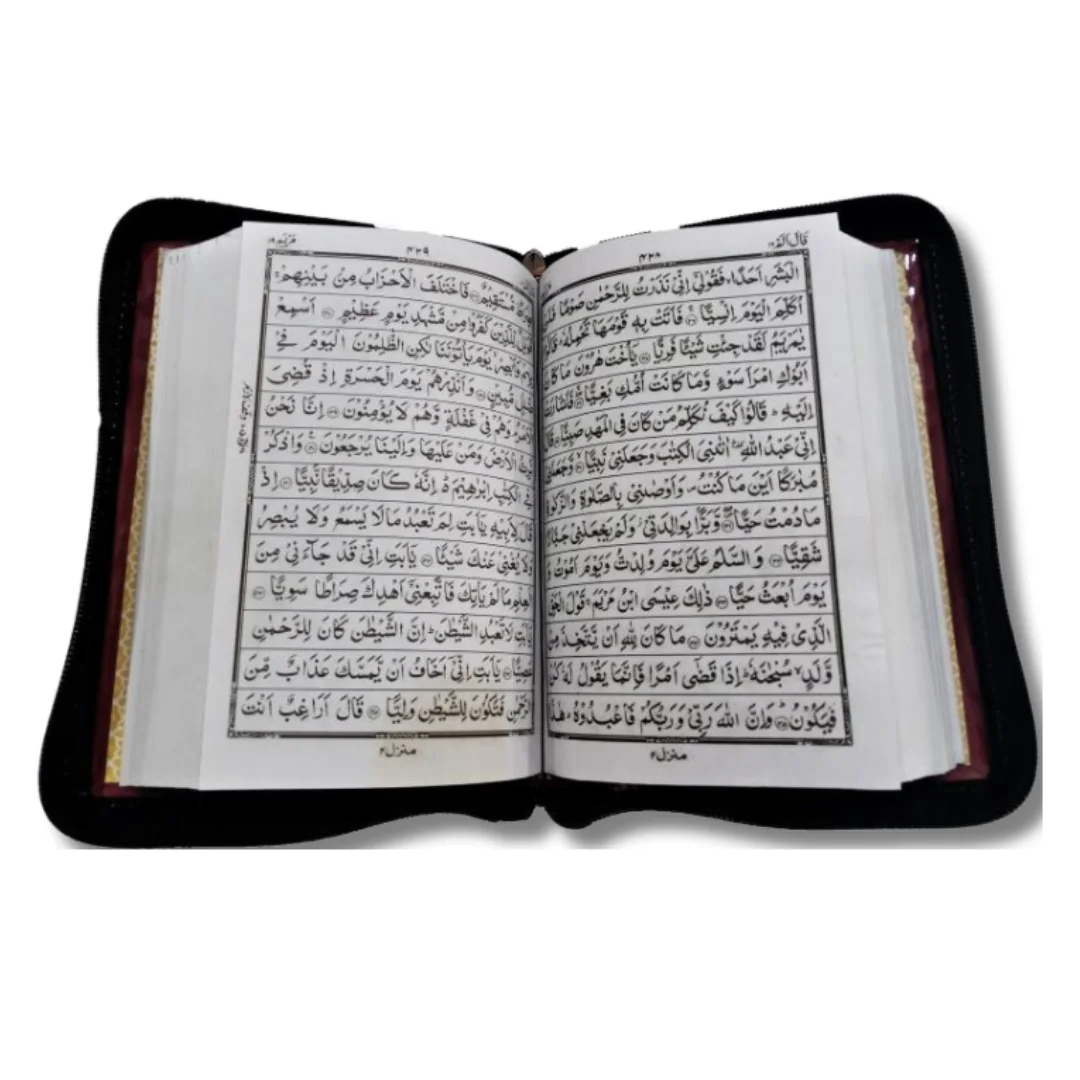 قَالَ اَلَمْ ١٦
٤٢٨
الْبَشَرِ اَحَدًا ۙ فَقُوْلِيْۤ اِنِّيْ نَذَرْتُ لِلرَّحْمٰنِ صَوْمًا فَلَنْ
اُكَلِّمَ الْيَوْمَ اِنْسِيًّا ۚ۝ فَاَتَتْ بِهٖ قَوْمَهَا تَحْمِلُهٗ ؕ قَالُوْا
يٰمَرْيَمُ لَقَدْ جِئْتِ شَيْـًٔا فَرِيًّا ۝ يٰۤاُخْتَ هٰرُوْنَ مَا كَانَ
اَبُوْكِ امْرَاَ سَوْءٍ وَّمَا كَانَتْ اُمُّكِ بَغِيًّا ۝ فَاَشَارَتْ
اِلَيْهِ ؕ قَالُوْا كَيْفَ نُكَلِّمُ مَنْ كَانَ فِي الْمَهْدِ صَبِيًّا ۝
اِنِّيْ عَبْدُ اللّٰهِ اٰتٰىنِيَ الْكِتٰبَ وَجَعَلَنِيْ نَبِيًّا ۝ وَّجَعَلَنِيْ
مُبٰرَكًا اَيْنَ مَا كُنْتُ وَاَوْصٰنِيْ بِالصَّلٰوةِ وَالزَّكٰوةِ
مَا دُمْتُ حَيًّا ۝ وَّبَرًّۢا بِوَالِدَتِيْ وَلَمْ يَجْعَلْنِيْ جَبَّارًا
شَقِيًّا ۝ وَالسَّلٰمُ عَلَيَّ يَوْمَ وُلِدْتُّ وَيَوْمَ اَمُوْتُ وَ
يَوْمَ اُبْعَثُ حَيًّا ۝ ذٰلِكَ عِيْسَى ابْنُ مَرْيَمَ ۚ قَوْلَ الْحَقِّ
الَّذِيْ فِيْهِ يَمْتَرُوْنَ ۝ مَا كَانَ لِلّٰهِ اَنْ يَّتَّخِذَ مِنْ
وَّلَدٍ ۙ سُبْحٰنَهٗ ؕ اِذَا قَضٰۤى اَمْرًا فَاِنَّمَا يَقُوْلُ لَهٗ كُنْ
فَيَكُوْنُ ۝ وَاِنَّ اللّٰهَ رَبِّيْ وَرَبُّكُمْ فَاعْبُدُوْهُ ؕ هٰذَا
منزل ٤
٤٢٩
مَرْيَم ١٩
صِرَاطٌ مُّسْتَقِيْمٌ ۝ فَاخْتَلَفَ الْاَحْزَابُ مِنْۢ بَيْنِهِمْ ۚ
فَوَيْلٌ لِّلَّذِيْنَ كَفَرُوْا مِنْ مَّشْهَدِ يَوْمٍ عَظِيْمٍ ۝ اَسْمِعْ
بِهِمْ وَاَبْصِرْ ۙ يَوْمَ يَاْتُوْنَنَا لٰكِنِ الظّٰلِمُوْنَ الْيَوْمَ فِيْ
ضَلٰلٍ مُّبِيْنٍ ۝ وَاَنْذِرْهُمْ يَوْمَ الْحَسْرَةِ اِذْ قُضِيَ
الْاَمْرُ ۘ وَهُمْ فِيْ غَفْلَةٍ وَّهُمْ لَا يُؤْمِنُوْنَ ۝ اِنَّا نَحْنُ
نَرِثُ الْاَرْضَ وَمَنْ عَلَيْهَا وَاِلَيْنَا يُرْجَعُوْنَ ۝ وَاذْكُرْ
فِي الْكِتٰبِ اِبْرٰهِيْمَ ؕ۬ اِنَّهٗ كَانَ صِدِّيْقًا نَّبِيًّا ۝ اِذْ
قَالَ لِاَبِيْهِ يٰۤاَبَتِ لِمَ تَعْبُدُ مَا لَا يَسْمَعُ وَلَا يُبْصِرُ
وَلَا يُغْنِيْ عَنْكَ شَيْـًٔا ۝ يٰۤاَبَتِ اِنِّيْ قَدْ جَآءَنِيْ مِنَ
الْعِلْمِ مَا لَمْ يَاْتِكَ فَاتَّبِعْنِيْۤ اَهْدِكَ صِرَاطًا سَوِيًّا ۝
يٰۤاَبَتِ لَا تَعْبُدِ الشَّيْطٰنَ ؕ اِنَّ الشَّيْطٰنَ كَانَ لِلرَّحْمٰنِ
عَصِيًّا ۝ يٰۤاَبَتِ اِنِّيْۤ اَخَافُ اَنْ يَّمَسَّكَ عَذَابٌ مِّنَ
الرَّحْمٰنِ فَتَكُوْنَ لِلشَّيْطٰنِ وَلِيًّا ۝ قَالَ اَرَاغِبٌ اَنْتَ
منزل ٤